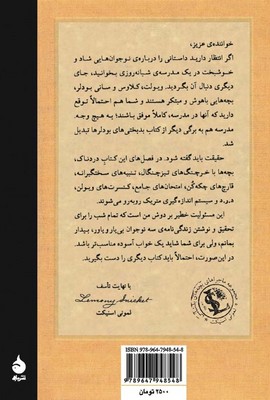 خواننده‌ی عزیز،
اگر انتظار دارید داستانی را درباره‌ی نوجوان‌هایی شاد و
خوشبخت در یک مدرسه‌ی شبانه‌روزی بخوانید، جای
دیگری دنبال آن بگردید. ویولت، کلاوس و سانی بودلر،
بچه‌هایی باهوش و مبتکر هستند و شما هم احتمالاً توقع
دارید که آنها در مدرسه، کاملاً موفق باشند؛ به هیچ وجه.
مدرسه هم به برگی دیگر از کتاب بدبختی‌های بودلرها تبدیل
شد.
حقیقت باید گفته شود. در فصل‌های این کتاب دردناک،
بچه‌ها با خرچنگ‌های تیزچنگال، تنبیه‌های سختگیرانه،
قارچ‌های چکه‌کن، امتحان‌های جامع، کنسرت‌های ویولن،
د.و.د و سیستم اندازه‌گیری متریک روبه‌رو می‌شوند.
این مسئولیت خطیر بر دوش من است که تمام شب را برای
تحقیق و نوشتن زندگی‌نامه‌ی سه نوجوان بی‌یار‌و‌یاور، بیدار
بمانم، ولی برای شما شاید یک خواب آسوده مناسب‌تر باشد.
در این‌صورت، احتمالاً باید کتاب دیگری را دست بگیرید.
با نهایت تأسف
Lemony Snicket
لمونی اسنیکت
ISBN 978-964-7948-54-8
9789647948548
۲۵۰۰ تومان